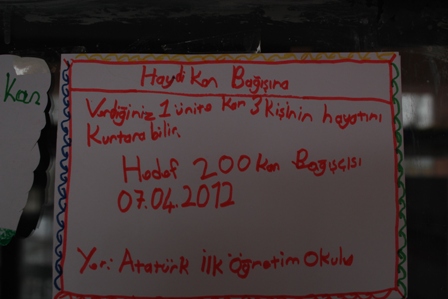 Kan
Haydi Kan Bağışına
Verdiğiniz 1 ünite kan 3 kişinin hayatını
Kurtarabilir.
Hedef 200 kan Bağışçısı
07.04.2012
Yer: Atatürk İlk Öğretim Okulu